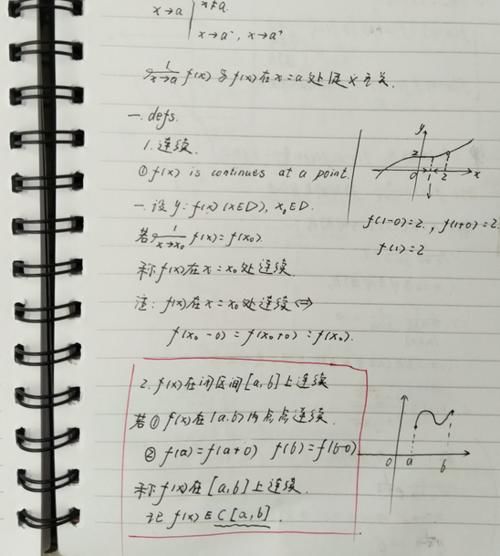 x→a | x≠a.
x→a⁻, x→a⁺
lim x→a f(x) 与 f(x) 在 x=a 处定义无关.
一. defs.
1. 连续.
① f(x) is continues at a point.
一. 设 y=f(x) (x∈D), x₀∈D.
若 lim x→x₀ f(x)=f(x₀)
称 f(x) 在 x=x₀ 处连续.
注: f(x) 在 x=x₀ 处连续 ⇔
f(x₀-0)=f(x₀+0)=f(x₀).
y
2
0 1 2 x
f(1-0)=2, f(1+0)=2
f(1)=2
2. f(x) 在闭区间 [a,b] 上连续
若 ① f(x) 在 (a,b) 内点点连续.
② f(a)=f(a+0) f(b)=f(b-0)
称 f(x) 在 [a,b] 上连续.
记 f(x)∈C[a,b].
0 a b